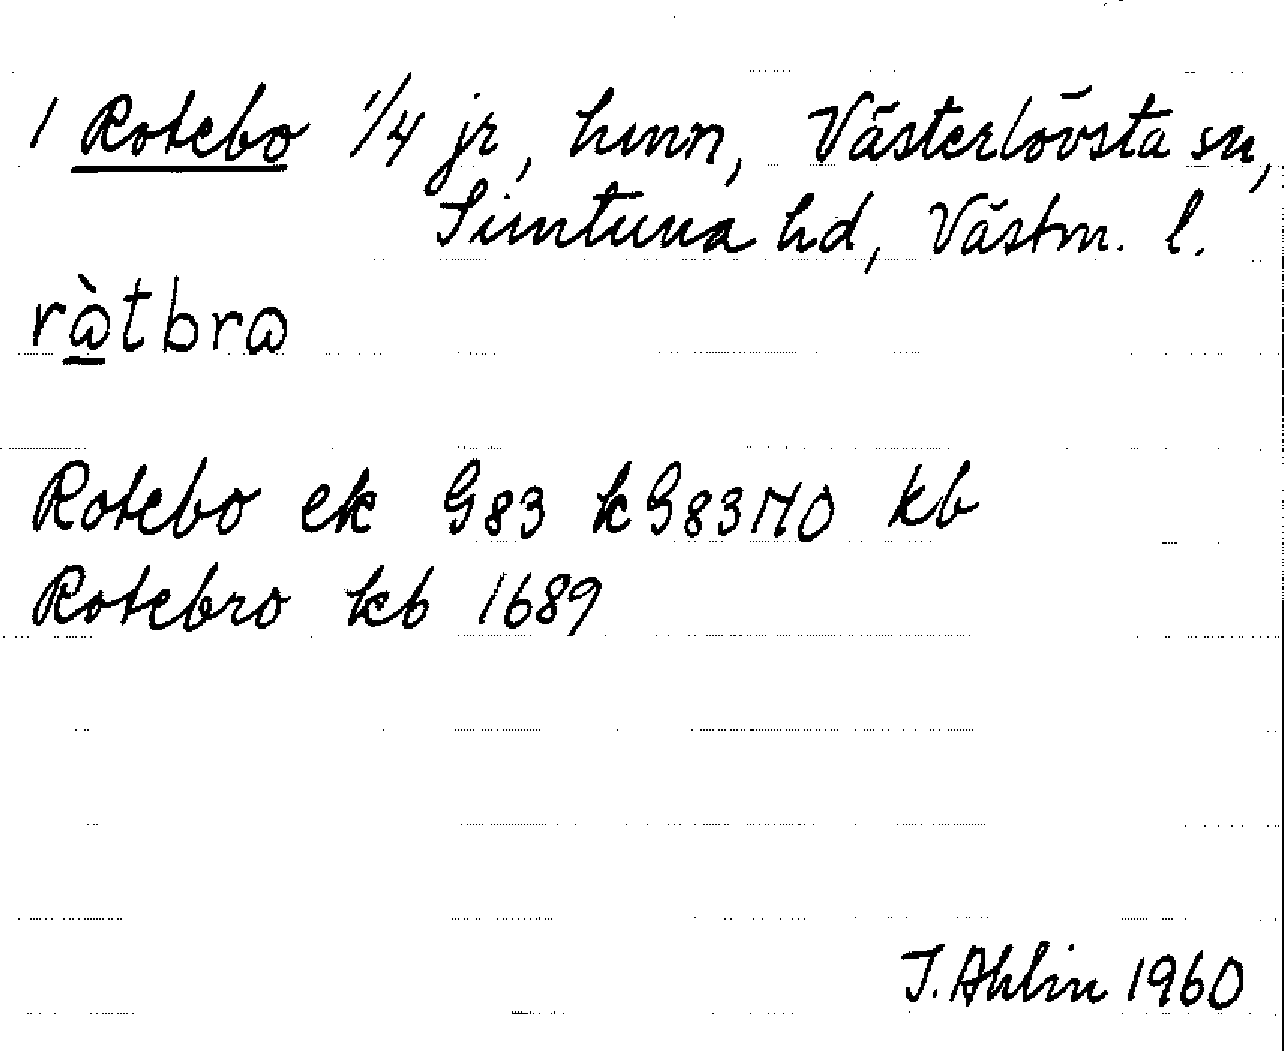 1 Rotebo 1/4 jr, hmn, Västerlövsta sn,
Simtuna hd, Västm. l.
ràtbra
Rotebo ek G83 kG83 MO kb
Rotebro kb 1689
J. Ahlin 1960